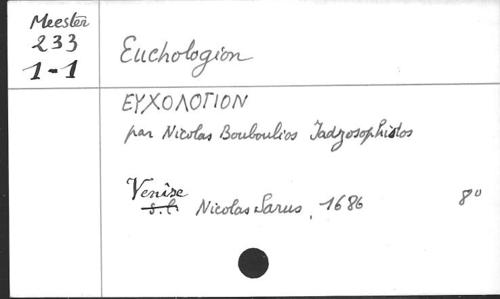 Meester
233
1-1
Euchologion
ΕΥΧΟΛΟΓΙΟΝ
par Nicolas Bouboulios Iadzosophistos
Venise
s.l.
Nicolas Sarus, 1686 8°